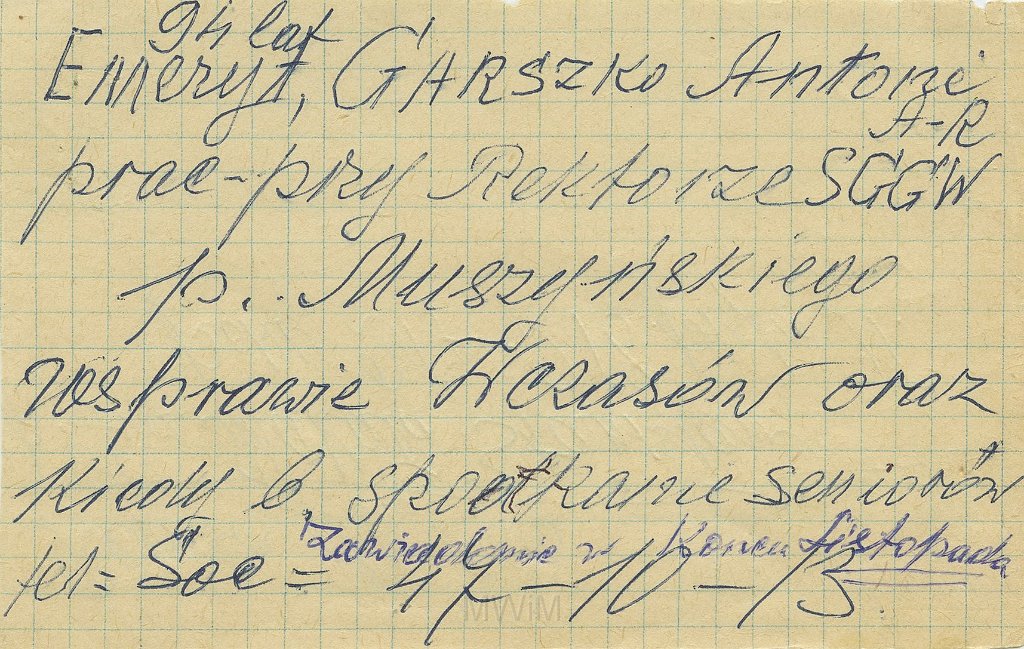 94 lat
Emeryt, GARSZKO Antoni
A-R
prac-przy Rektorze SGGW
p. Muszyńskiego
w sprawie Wczasów oraz
Kiedy b. spotkanie seniorów
Zawiadomienie w Końcu listopada
tel = Soc = 47-10-13.
MWiM